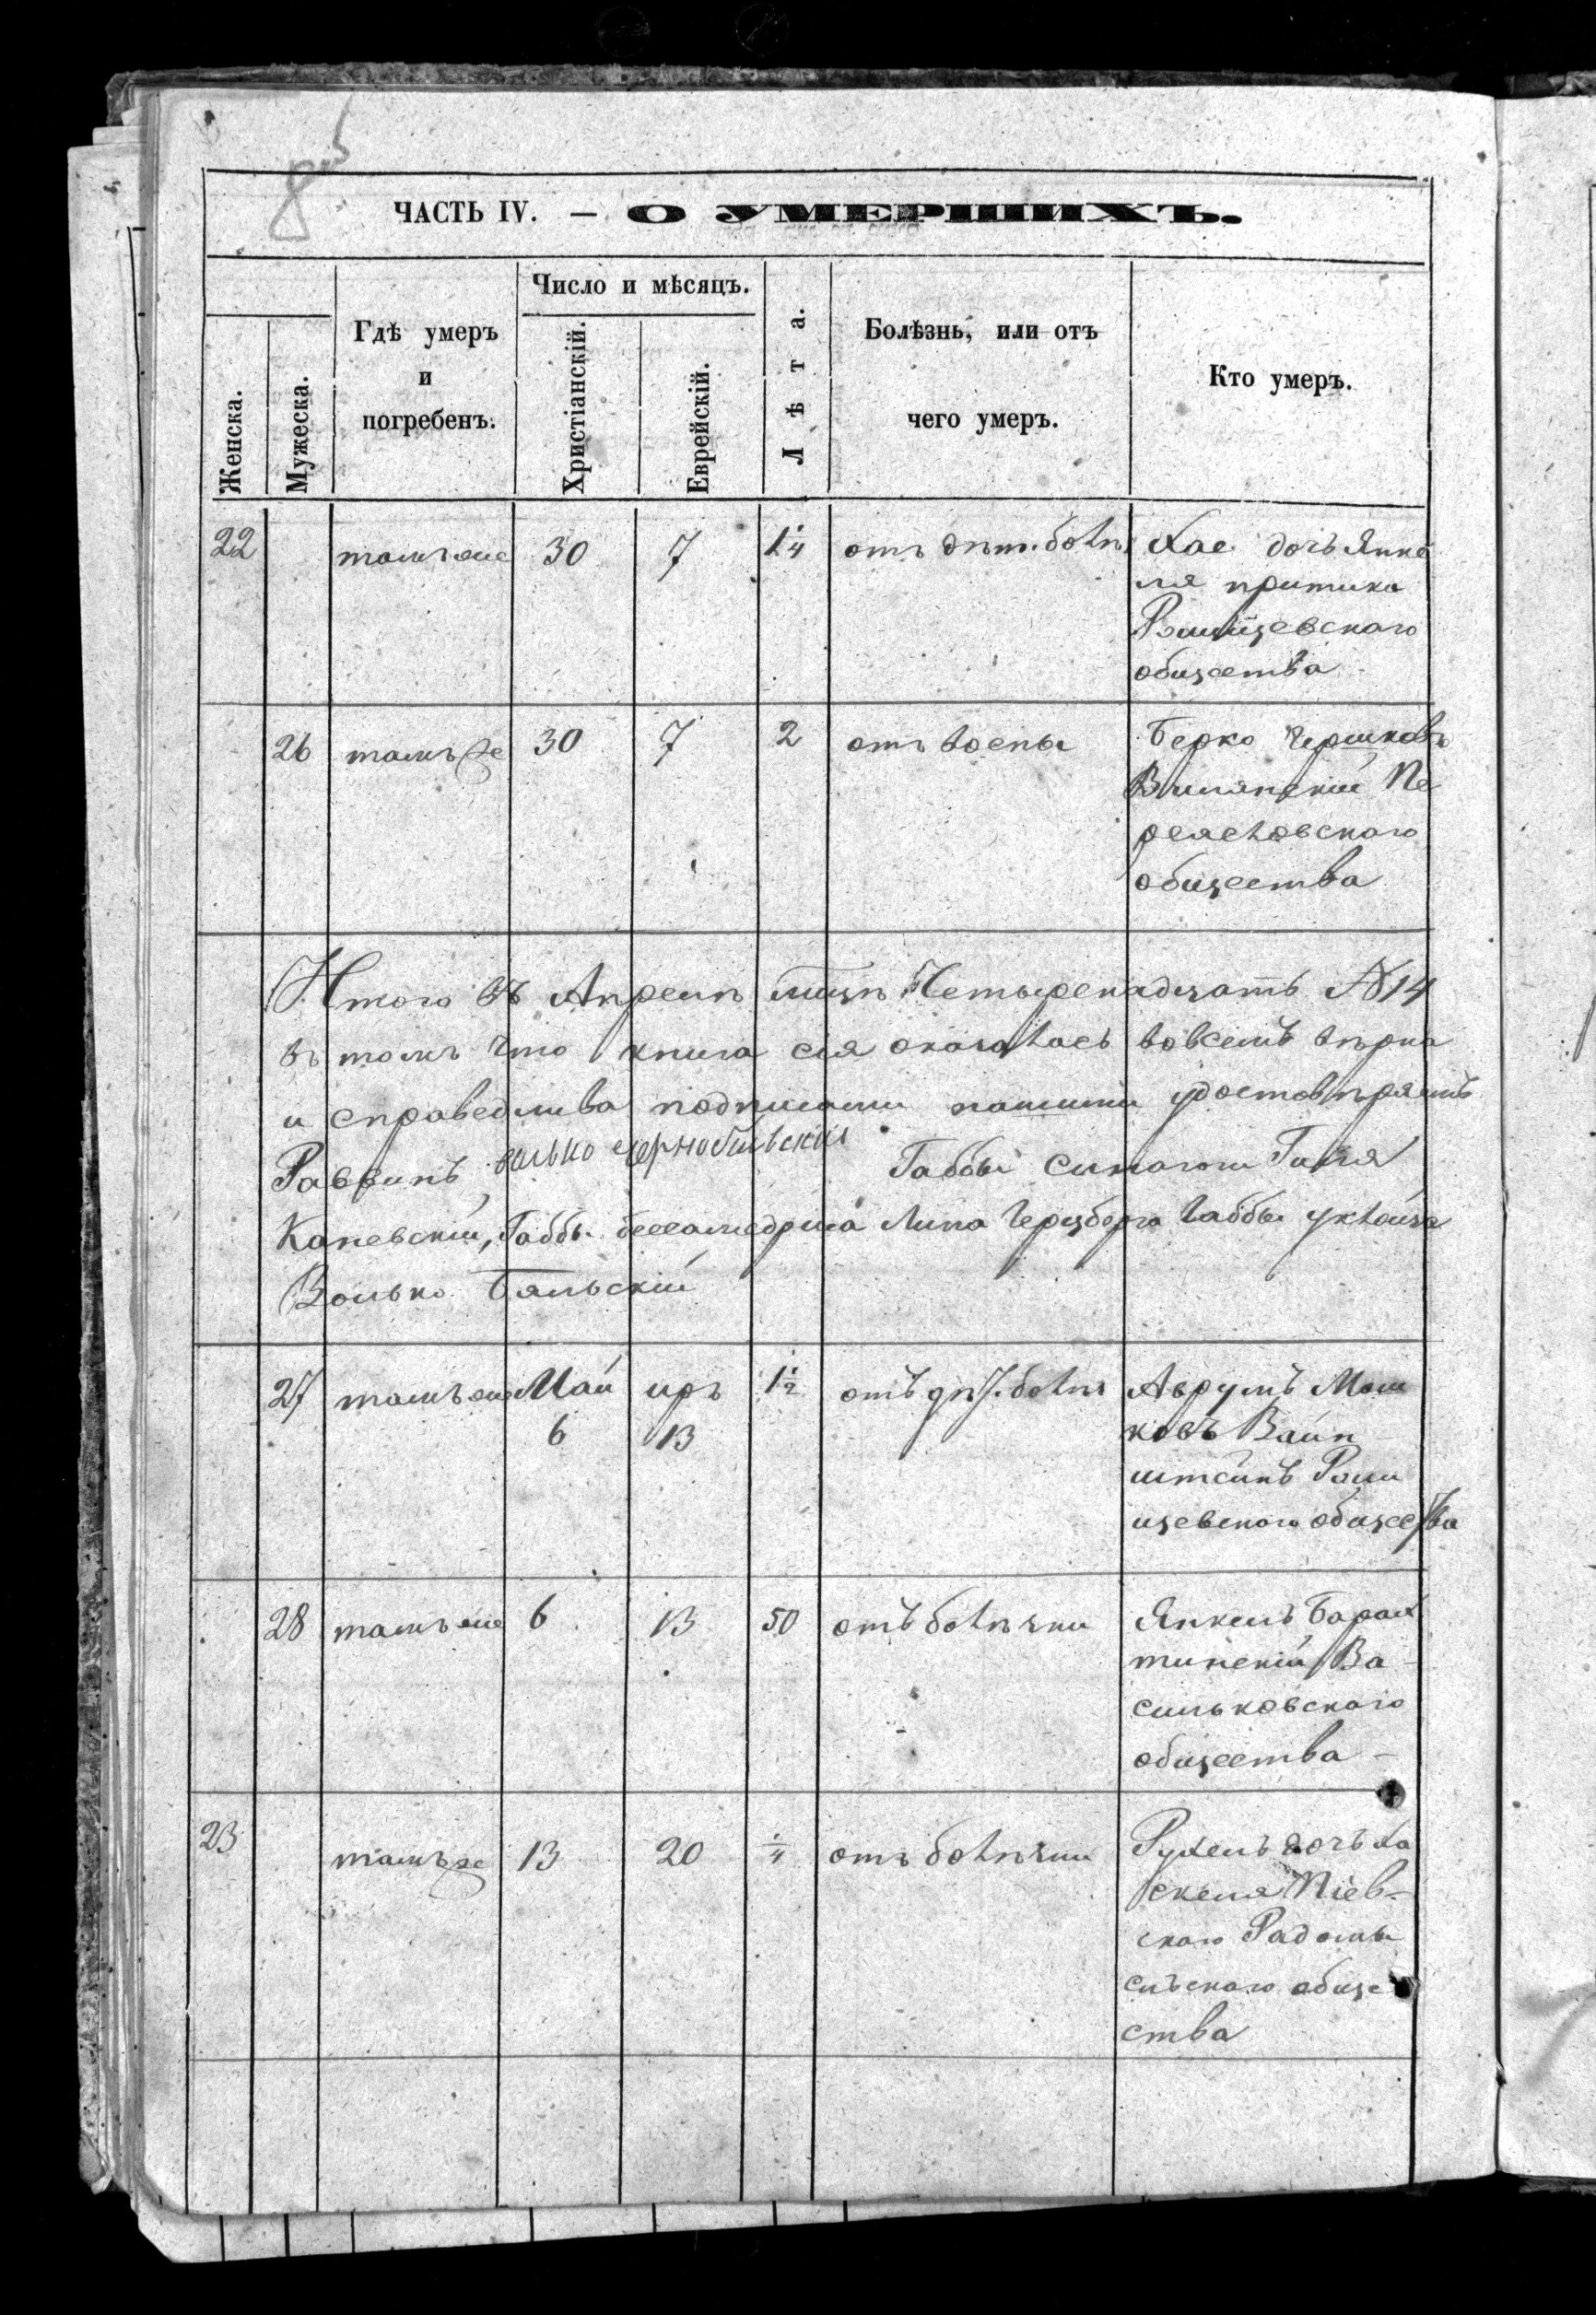 8 об
ЧАСТЬ IV. — О УМЕРШИХЪ.
Женска.
Мужеска.
Гдѣ умеръ
и
погребенъ.
Число и мѣсяцъ.
Христіанскій.
Еврейскій.
Лѣта.
Болѣзнь, или отъ
чего умеръ.
Кто умеръ.
22 тамъ же 30 7 1¼ отъ дѣт. болѣз Хае дочь Янке
ля притика
Ржищевскаго
общества
26 тамъ же 30 7 2 отъ воспы Берко Гершковъ
Вилянскій Пе
реяславского
общества
Итого въ Апрелѣ мѣцѣ Четыренадцать №14
въ томъ что книга сія оказалась вовсемъ вѣрна
и справедлива подписами нашими удостовѣряемъ
Раввинъ Волько Чернобильскій Габбы синагоги
Каневскій, Габбы бесамедриша Липа Герцберга Габбы
Волько Бяльскій
27 тамъ же Май иръ 1½ отъ дѣт. болѣз Аврумъ Мош
6 13 ковъ Вайн
штейнъ Ржи
щевского общества
28 тамъ же 6 13 50 отъ болѣзни Янкель Барах
тинскій Ва
сильковского
общества —
23 тамъ же 13 20 ¼ отъ болѣзни Рухель дочь Ха
скеля Кіев-
ского Радомы
сльского обще
ства